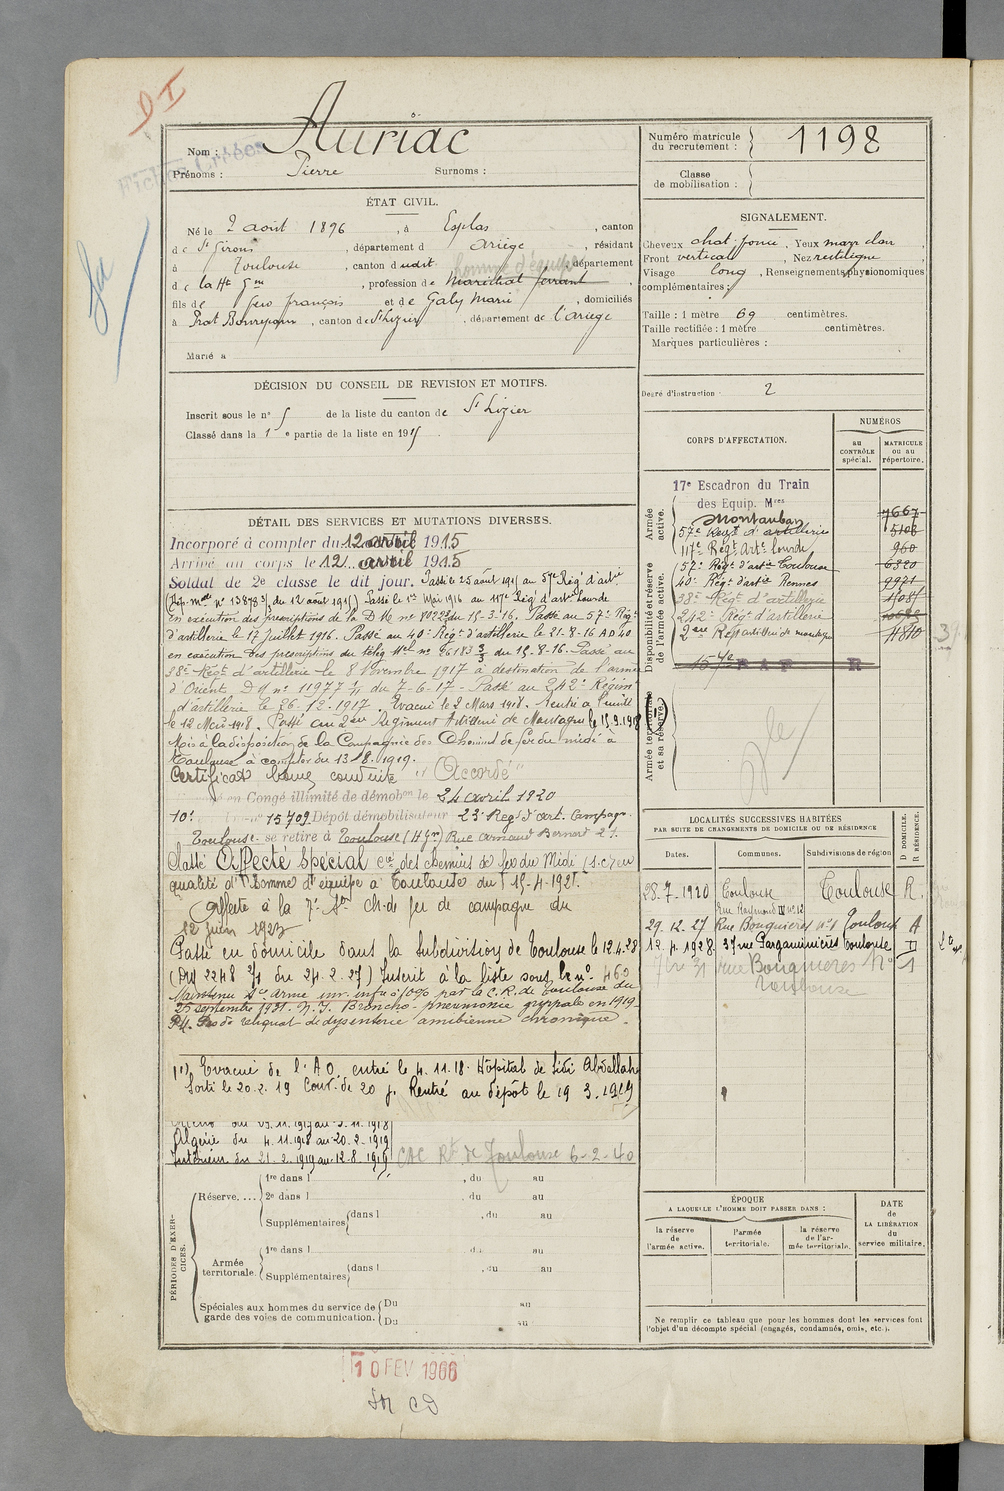 DI
Fiches créées
Nom : Auriac
Prénoms : Pierre Surnoms :
Numéro matricule du recrutement : 1198
Classe de mobilisation :
ÉTAT CIVIL.
Né le 2 août 1896, à Esplas, canton
de St Girons, département d Ariège, résidant
à Toulouse, canton dudit homme d'équipe département
de la Hte Gne, profession de Maréchal ferrant,
fils de feu françois et de Galy Marie, domiciliés
à Prat Bonrepaux, canton de St Lizier, département de l'ariège
Marié à
SIGNALEMENT.
Cheveux chat. foncé, Yeux marr clair,
Front vertical, Nez rectiligne,
Visage long, Renseignements physionomiques
complémentaires :
Taille : 1 mètre 69 centimètres.
Taille rectifiée : 1 mètre centimètres.
Marques particulières :
Degré d'instruction : 2
DÉCISION DU CONSEIL DE REVISION ET MOTIFS.
Inscrit sous le n° 5 de la liste du canton de St Lizier
Classé dans la 1e partie de la liste en 1915.
CORPS D'AFFECTATION.
NUMÉROS
au CONTRÔLE spécial.
MATRICULE ou au répertoire.
Armée active.
17e Escadron du Train
des Equip. Mres
Montauban 7667
57e Regt d'artillerie 5108
117e Régt Arte Lourde 960
Disponibilité et réserve de l'armée active.
57e Régt d'artie Toulouse 6320
40e Régt d'artie Rennes 9971
38e Régt d'artillerie
242e Régt d'artillerie
2ème Régt artillerie de montagne
Armée territoriale et sa réserve.
DÉTAIL DES SERVICES ET MUTATIONS DIVERSES.
Incorporé à compter du 12 avril 1915
Arrivé au corps le 12 avril 1915
Soldat de 2e classe le dit jour. Passé le 25 août 1915 au 57e Rég d'artie
(Dép. Mlle n° 13878 3/3 du 12 août 1915) Passé le 1er Mai 1916 au 117e Rég d'artie Lourde
en exécution des prescriptions de la D M n° 8022 du 15-3-16. Passé au 57e Régt
d'artillerie le 17 juillet 1916. Passé au 40e Régt d'artillerie le 21-8-16 AD 40
en exécution des prescriptions du télég Mel n° 26183 3/3 du 15-8-16. Passé au
38e Régt d'artillerie le 8 Novembre 1917 à destination de l'armée
d'Orient D M n° 11977 1/1 du 7-6-17. Passé au 242e Régiment
d'artillerie le 26-12-1917. Evacué le 2 Mars 1918. Rentré à l'unité
le 12 Mars 1918. Passé au 2ème Régiment Artillerie de Montagne le 15.9.1918 (1)
Mis à la disposition de la Compagnie des Chemins de fer du midi à
Toulouse à compter du 13.8.1919.
Certificat bonne conduite "Accordé"
en Congé illimité de démobon le 24 avril 1920
n° 15709 Dépôt démobilisateur 23e Regt d'art. Campagne
Toulouse se retire à Toulouse (H. Gne) Rue Arnaud Bernard 21.
Classé Affecté Spécial Cie des chemins de fer du Midi (s.c.) en
qualité d'homme d'équipe à Toulouse du 15-4-1921.
Affecté à la 7e Son ch. de fer de campagne du
12 juin 1923
Passé en domicile dans la Subdivision de Toulouse le 12.4.28
(DM 2248 2/1 du 24.2.27) Inscrit à la liste sous le n° 460
Maintenu Sce Armé inv. inf. à 10% par la C.R. de Toulouse du
25 septembre 1931. N. I. Broncho pneumonie grippale en 1919.
P.I. Pas de reliquat de dysenterie amibienne chronique.
(1) Evacué de l'A O entré le 4.11.18 Hôpital de Sidi Abdallah
Sorti le 20.2.19 Conv. de 20 j. Rentré au dépôt le 19.3.1919
Algérie du 4.11.1918 au 20.2.1919
Intérieur du 21.2.1919 au 12.8.1919
CAC Rt de Toulouse 6-2-40
LOCALITÉS SUCCESSIVES HABITÉES
PAR SUITE DE CHANGEMENTS DE DOMICILE OU DE RÉSIDENCE
Dates. Communes. Subdivisions de région D DOMICILE. R RÉSIDENCE.
28-7-1920 Toulouse Toulouse R.
Rue Raymond IV n° 12
29.12.27 Rue Bouquières n°1 Toulouse
12.4.1928 37 rue Pargaminières Toulouse D
31 rue Bouquières N° 1
Toulouse
PÉRIODES D'EXERCICES.
Réserve. ...
1re dans l , du au
2e dans l , du au
Supplémentaires dans l , du au
Armée territoriale.
1re dans l , du au
Supplémentaires dans l , du au
Spéciales aux hommes du service de garde des voies de communication.
Du au
Du au
ÉPOQUE
A LAQUELLE L'HOMME DOIT PASSER DANS :
la réserve de l'armée active.
l'armée territoriale.
la réserve de l'armée territoriale.
DATE de LA LIBÉRATION du service militaire.
Ne remplir ce tableau que pour les hommes dont les services font
l'objet d'un décompte spécial (engagés, condamnés, omis, etc.).
10 FEV 1966